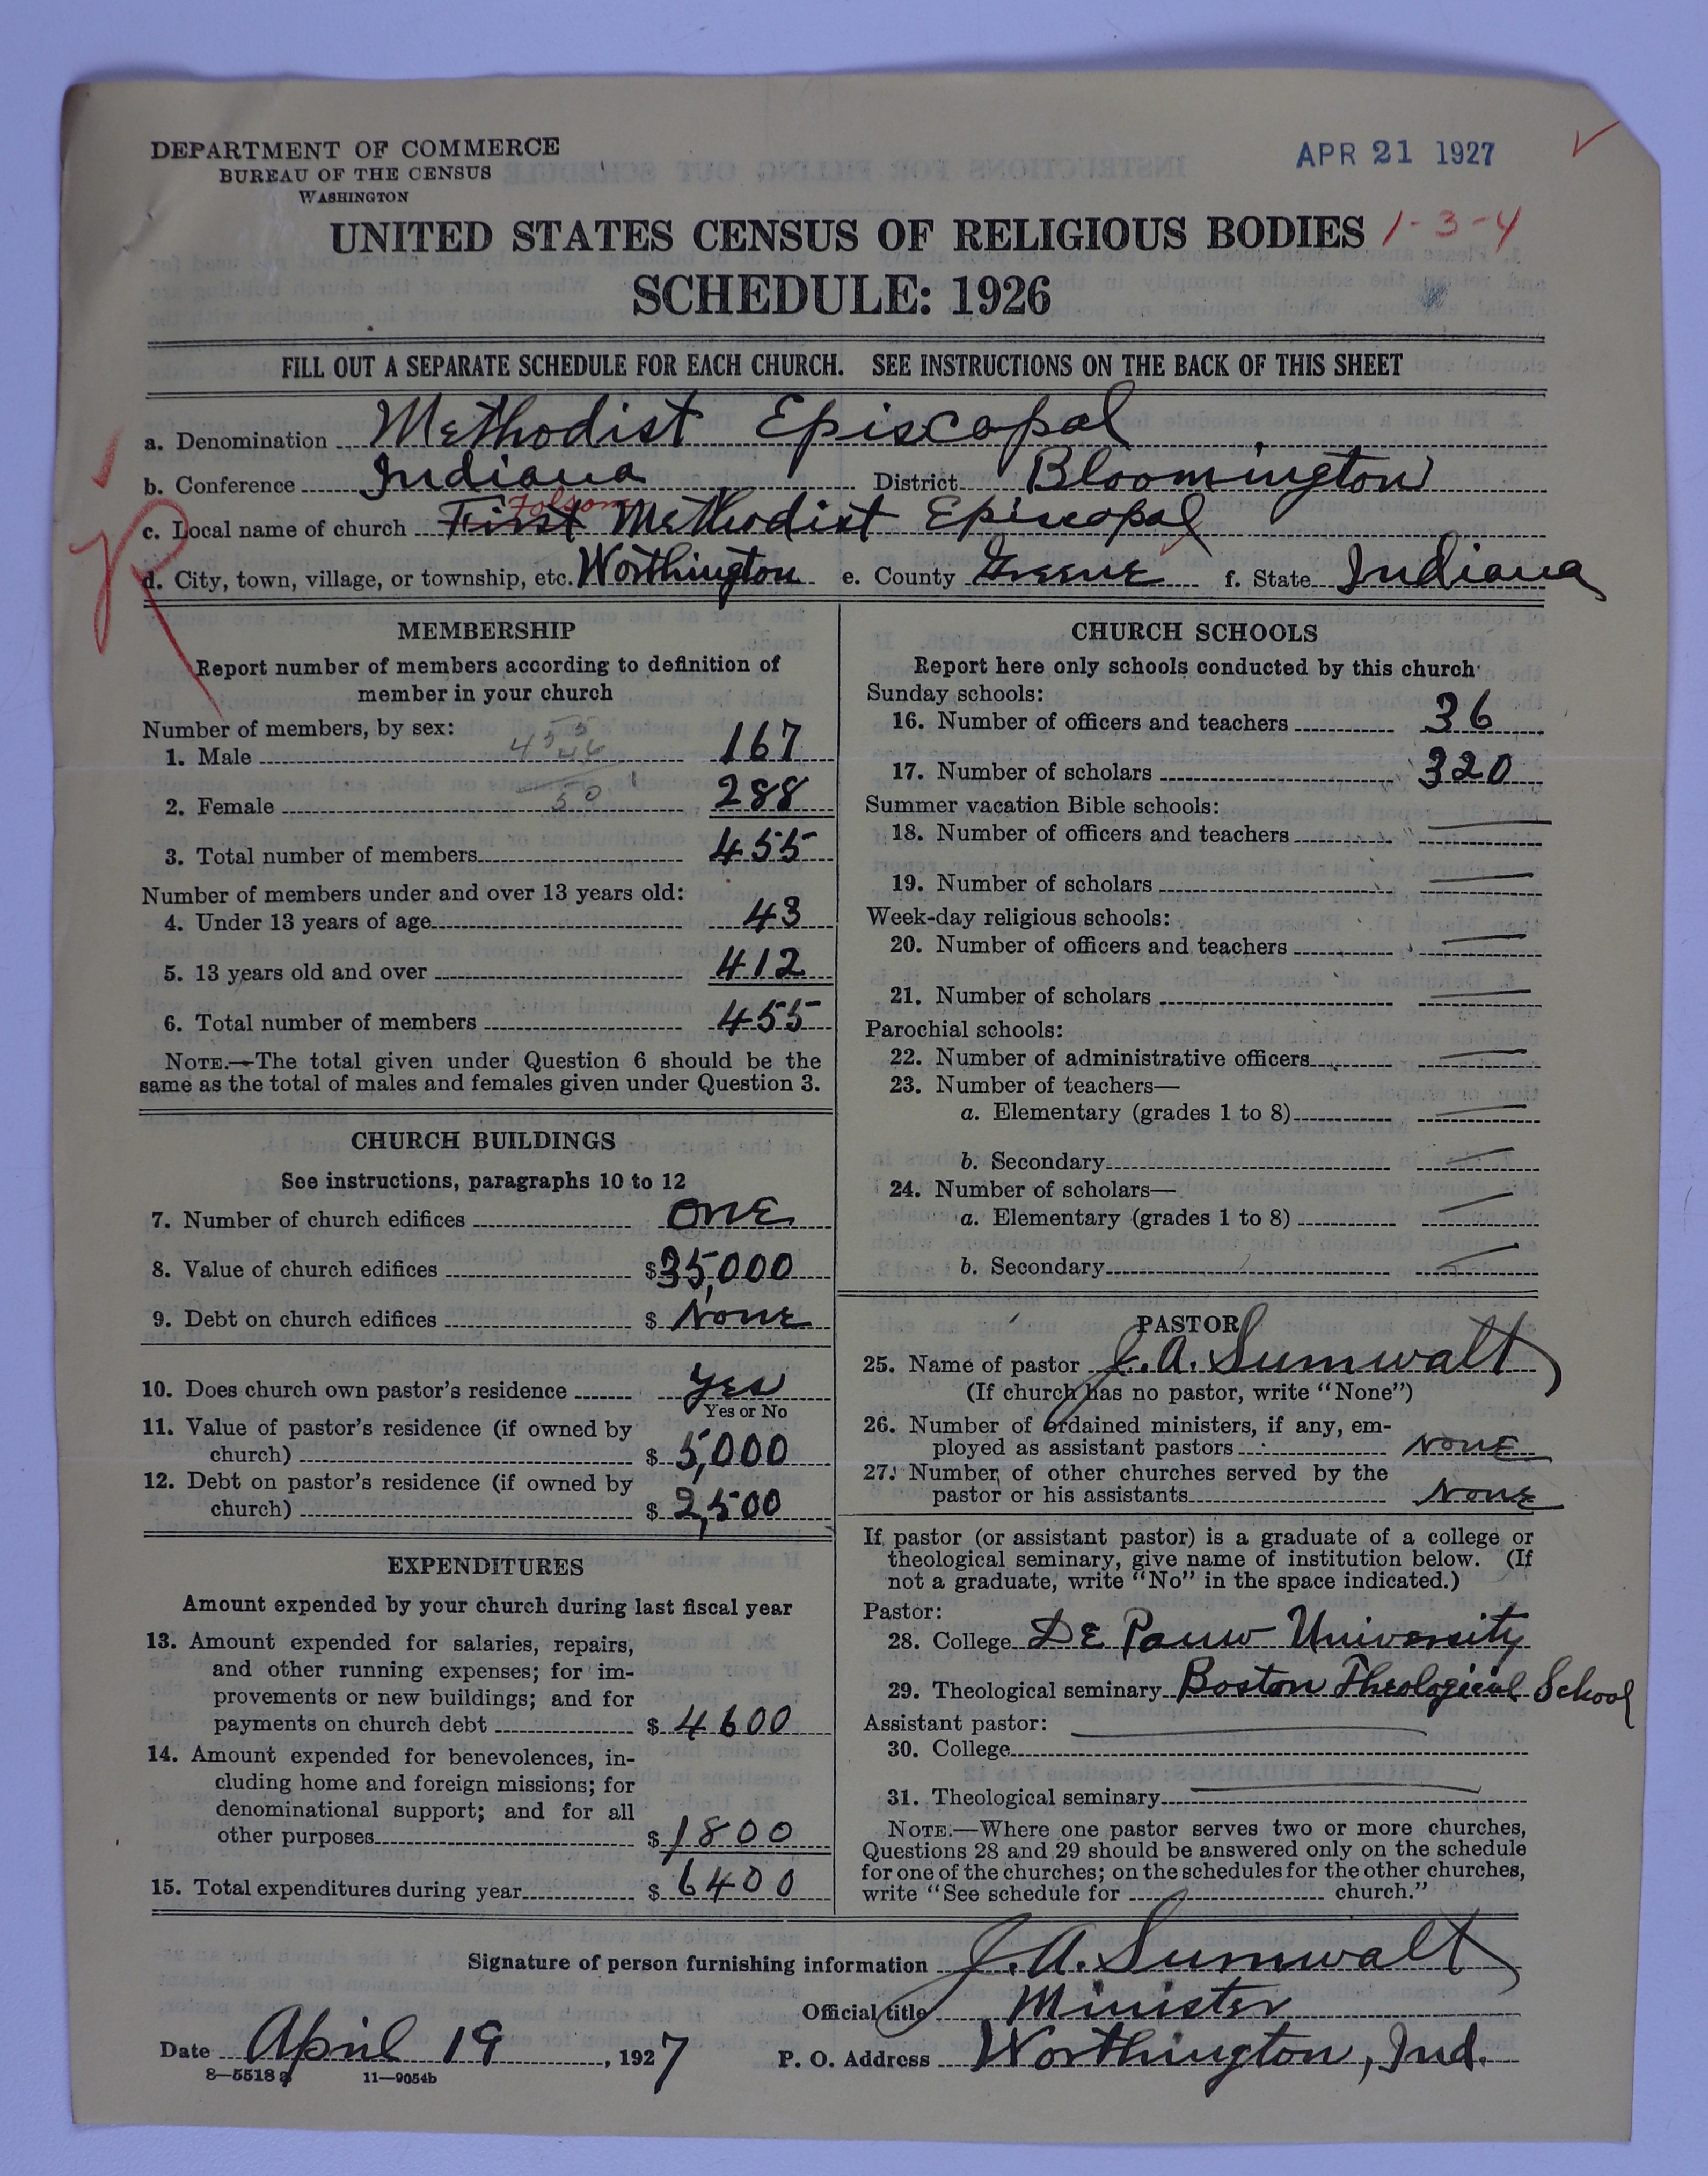 DEPARTMENT OF COMMERCE
BUREAU OF THE CENSUS
WASHINGTON
APR 21 1927
UNITED STATES CENSUS OF RELIGIOUS BODIES 1-3-4
SCHEDULE: 1926
FILL OUT A SEPARATE SCHEDULE FOR EACH CHURCH. SEE INSTRUCTIONS ON THE BACK OF THIS SHEET
a. Denomination Methodist Episcopal
b. Conference Indiana District Bloomington
Folsom
c. Local name of church First Methodist Episcopal
d. City, town, village, or township, etc. Worthington e. County Greene f. State Indiana
MEMBERSHIP
Report number of members according to definition of
member in your church
Number of members, by sex:
1. Male 167
2. Female 288
3. Total number of members 455
Number of members under and over 13 years old:
4. Under 13 years of age 43
5. 13 years old and over 412
6. Total number of members 455
NOTE.—The total given under Question 6 should be the
same as the total of males and females given under Question 3.
CHURCH BUILDINGS
See instructions, paragraphs 10 to 12
7. Number of church edifices One
8. Value of church edifices $35,000
9. Debt on church edifices $ None
10. Does church own pastor's residence Yes
Yes or No
11. Value of pastor's residence (if owned by
church) $ 5,000
12. Debt on pastor's residence (if owned by
church) $ 2,500
EXPENDITURES
Amount expended by your church during last fiscal year
13. Amount expended for salaries, repairs,
and other running expenses; for im-
provements or new buildings; and for
payments on church debt $ 4600
14. Amount expended for benevolences, in-
cluding home and foreign missions; for
denominational support; and for all
other purposes $ 1800
15. Total expenditures during year $ 6400
CHURCH SCHOOLS
Report here only schools conducted by this church
Sunday schools:
16. Number of officers and teachers 36
17. Number of scholars 320
Summer vacation Bible schools:
18. Number of officers and teachers
19. Number of scholars
Week-day religious schools:
20. Number of officers and teachers
21. Number of scholars
Parochial schools:
22. Number of administrative officers
23. Number of teachers—
a. Elementary (grades 1 to 8)
b. Secondary
24. Number of scholars—
a. Elementary (grades 1 to 8)
b. Secondary
PASTOR
25. Name of pastor J.A. Sumwalt
(If church has no pastor, write "None")
26. Number of ordained ministers, if any, em-
ployed as assistant pastors None
27. Number of other churches served by the
pastor or his assistants None
If pastor (or assistant pastor) is a graduate of a college or
theological seminary, give name of institution below. (If
not a graduate, write "No" in the space indicated.)
Pastor:
28. College De Pauw University
29. Theological seminary Boston Theological School
Assistant pastor:
30. College
31. Theological seminary
NOTE.—Where one pastor serves two or more churches,
Questions 28 and 29 should be answered only on the schedule
for one of the churches; on the schedules for the other churches,
write "See schedule for church."
Signature of person furnishing information J.A. Sumwalt
Official title Minister
Date April 19, 1927 P. O. Address Worthington, Ind.
8—5518 a 11—9054b